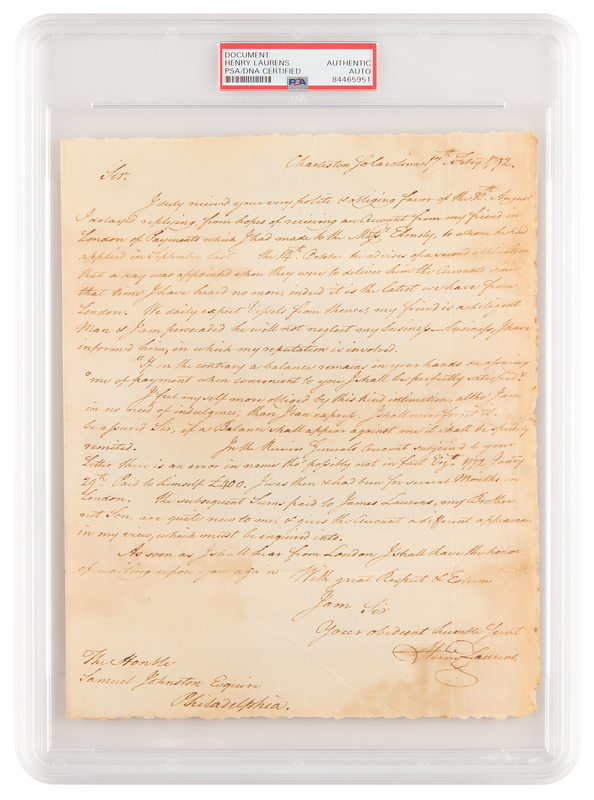 DOCUMENT
HENRY LAURENS AUTHENTIC
PSA/DNA CERTIFIED AUTO
PSA
84465951
Charleston So Carolina 17th. Feby 1792.
Sir.
I duly received your very polite & obliging favor of the 30th. August
I delayed replying, from hopes of receiving an Account from my friend in
London of Payments which I had made to the Elmsly, to whom he had
applied in September last. the 4th. October he advises of a second application
that a day was appointed when they were to deliver him the Accounts since
that time I have heard no more, indeed it is the latest we have from
London. We daily expect Vessels from thence, my friend is a diligent
Man & I am persuaded he will not neglect my business, business I have
inform'd him, in which my reputation is involved.
"If on the contrary a balance remains in your hands on assuring
"me of payment when convenient to you I shall be perfectly satisfied"
I feel my self more obliged by this kind intimation, altho' I am
in no need of indulgence, than I can express, I shall never forget it
be assured Sir, if a Balance shall appear against me it shall be speedily
remitted. In the Receiver Generals Account subjoined to your
Letter there is an error in name tho' possibly not in fact Vizt. 1772 Janry
29th. Paid to himself £400. I was then & had been for several Months in
London. The subsequent Sums paid to James Laurens, my Brother
not Son, are quite new to me, & gives the Account a different appearance
in my view, which must be enquired into.
As soon as I shall hear from London I shall have the honor
of waiting upon you again With great Respect & Esteem
I am Sir
Your obedient humble Servt
Henry Laurens.
The Honble
Samuel Johnston Esquire
Philadelphia.